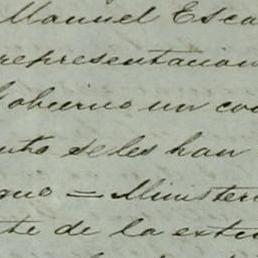 Manuel Esca
representacion
Gobierno un co
se les han
que = Ministeri
te de la